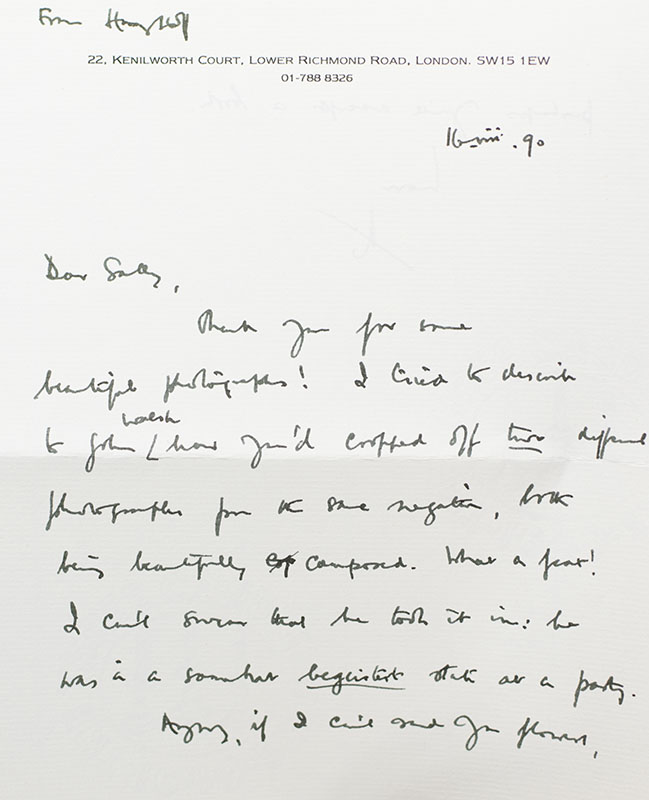 From
22, Kenilworth Court, Lower Richmond Road, London. SW15 1EW
01-788 8326
16.viii.90
Dear Sally,
Thank you for some
beautiful photographs! I tried to describe
Walsh
to John / how you'd cropped off two different
photographs from the same negative, both
being beautifully composed. What a feat!
I can't swear that he took it in: he
was in a somewhat begeistert state at a party.
Anyway, if I can't send you flowers,